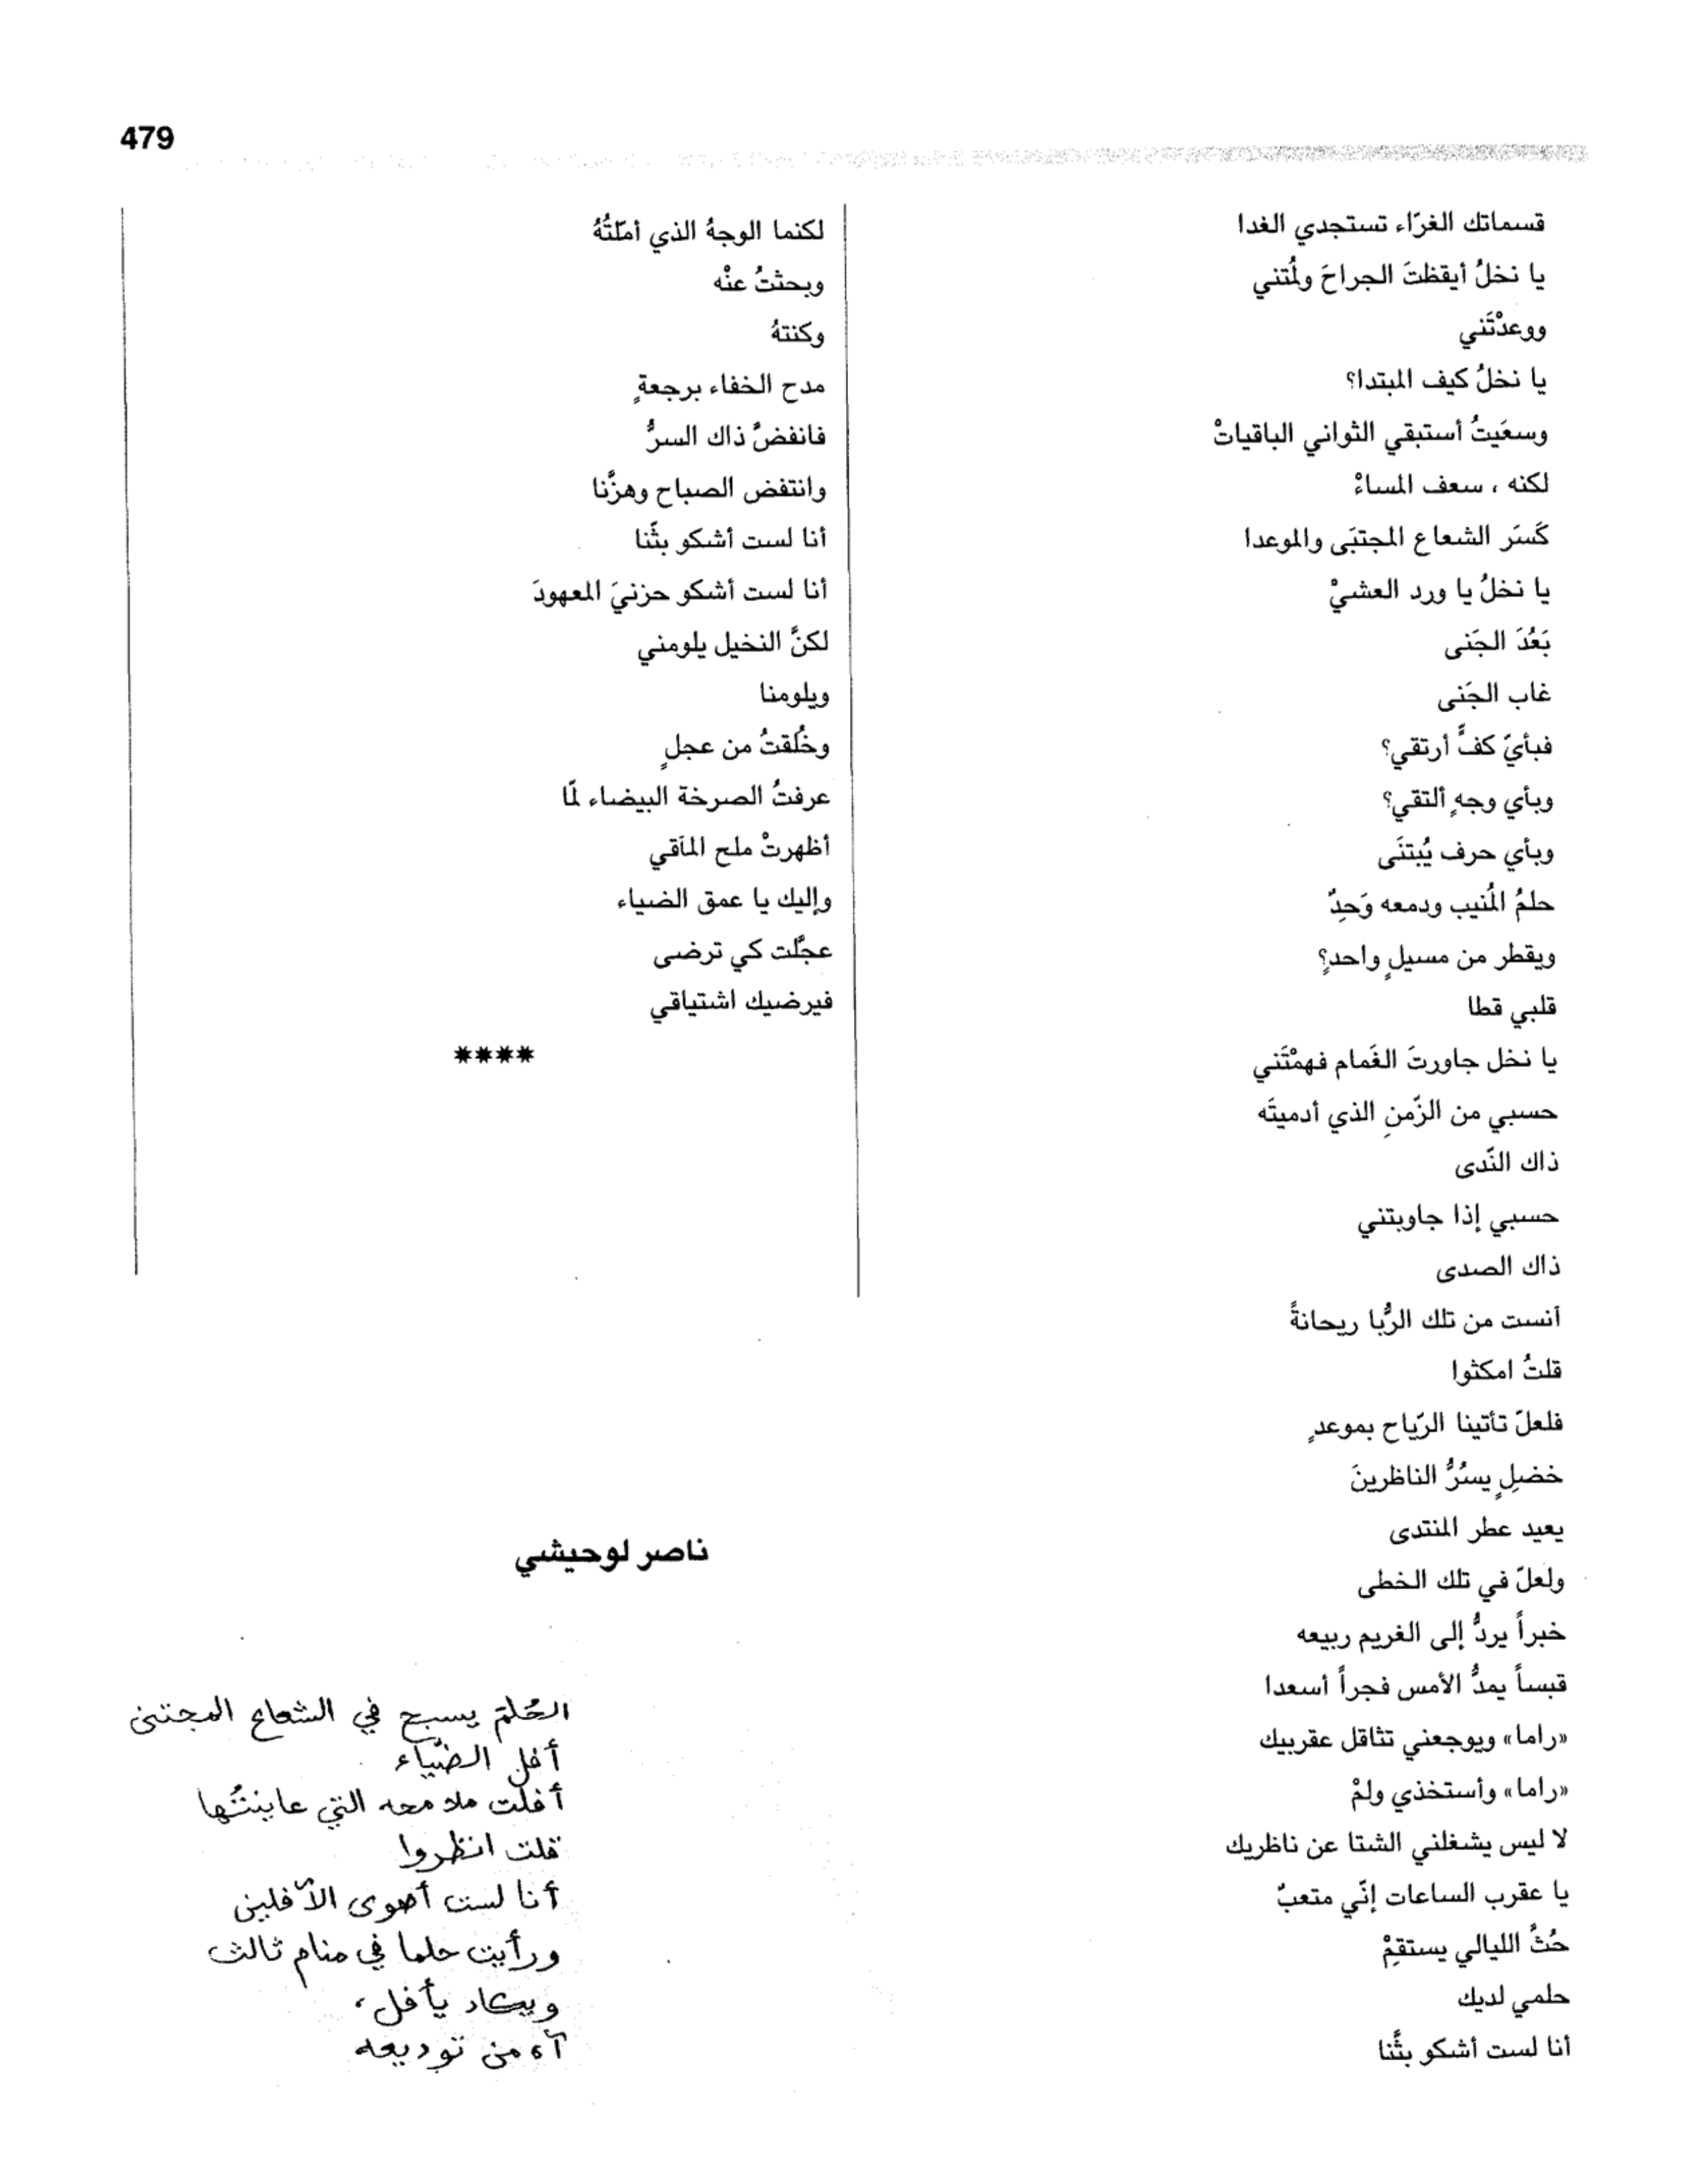 479
قسماتك الغرّاء تستجدي الغدا
يا نخلُ أيقظتَ الجراحَ ولُمتني
ووعدْتَني
يا نخلُ كيف المبتدا؟
وسعَيتُ أستبقي الثواني الباقياتْ
لكنه ، سعف المساءْ
كَسَر الشعاع المجتبَى والموعدا
يا نخلُ يا ورد العشيْ
بَعُدَ الجَنى
غاب الجَنى
فبأيّ كفٍّ أرتقي؟
وبأي وجهٍ ألتقي؟
وبأي حرف يُبتنَى
حلمُ المُنيب ودمعه وَحِدٌ
ويقطر من مسيلٍ واحدٍ؟
قلبي قطا
يا نخل جاورتَ الغَمام فهمْتَني
حسبي من الزّمنِ الذي أدميتَه
ذاك النّدى
حسبي إذا جاوبتني
ذاك الصدى
آنست من تلك الرُّبا ريحانةً
قلتُ امكثوا
فلعلّ تأتينا الرّياح بموعدٍ
خضلِ يسُرُّ الناظرينَ
يعيد عطر المنتدى
ولعلّ في تلك الخطى
خبراً يردُّ إلى الغريم ربيعه
قبساً يمدُّ الأمس فجراً أسعدا
«راما» ويوجعني تثاقل عقربيك
«راما» وأستخذي ولمْ
لا ليس يشغلني الشتا عن ناظريك
يا عقرب الساعات إنّي متعبٌ
حُثَّ الليالي يستقِمْ
حلمي لديك
أنا لست أشكو بثَّنا
لكنما الوجهُ الذي أمّلتُهُ
وبحثتُ عنْه
وكنتهُ
مدح الخفاء برجعةٍ
فانفضَّ ذاك السرُّ
وانتفض الصباح وهزَّنا
أنا لست أشكو بثَّنا
أنا لست أشكو حزنيَ المعهودَ
لكنَّ النخيل يلومني
ويلومنا
وخُلقتُ من عجلٍ
عرفتُ الصرخة البيضاء لمّا
أظهرتْ ملح المآقي
وإليك يا عمق الضياء
عجَّلت كي ترضى
فيرضيك اشتياقي
****
ناصر لوحيشي
الحُلمَ يسبح في الشعاع المجتبى
أفل الضّياء
أفلت ملامحه التي عاينتُها
قلت انظروا
أنا لست أهوى الآفلين
ورأيت حلما في منام ثالث
ويكاد يأفل،
آه من توديعه